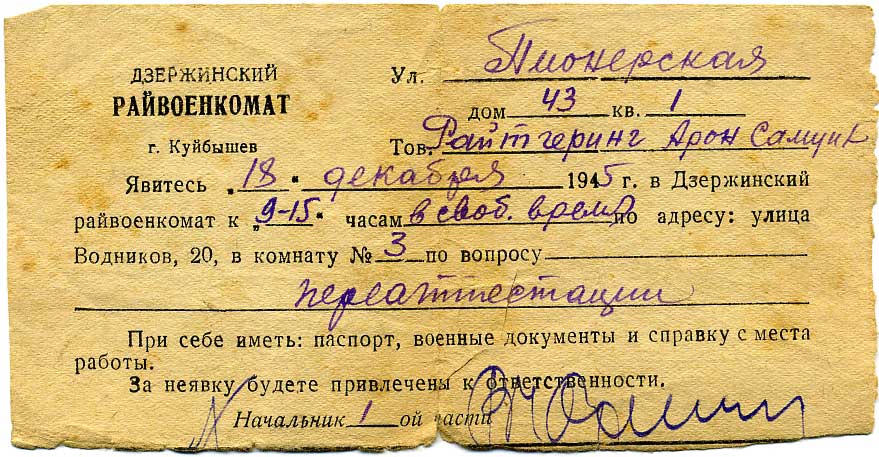 ДЗЕРЖИНСКИЙ
РАЙВОЕНКОМАТ
г. Куйбышев
Ул. Пионерская
дом 43 кв. 1
Тов. Райтгеринг Арон Самуил
Явитесь „18“ декабря 1945 г. в Дзержинский
райвоенкомат к „9-15“ часам в своб. время по адресу: улица
Водников, 20, в комнату № 3 по вопросу
переаттестации
При себе иметь: паспорт, военные документы и справку с места
работы.
За неявку будете привлечены к ответственности.
Начальник 1 ой части